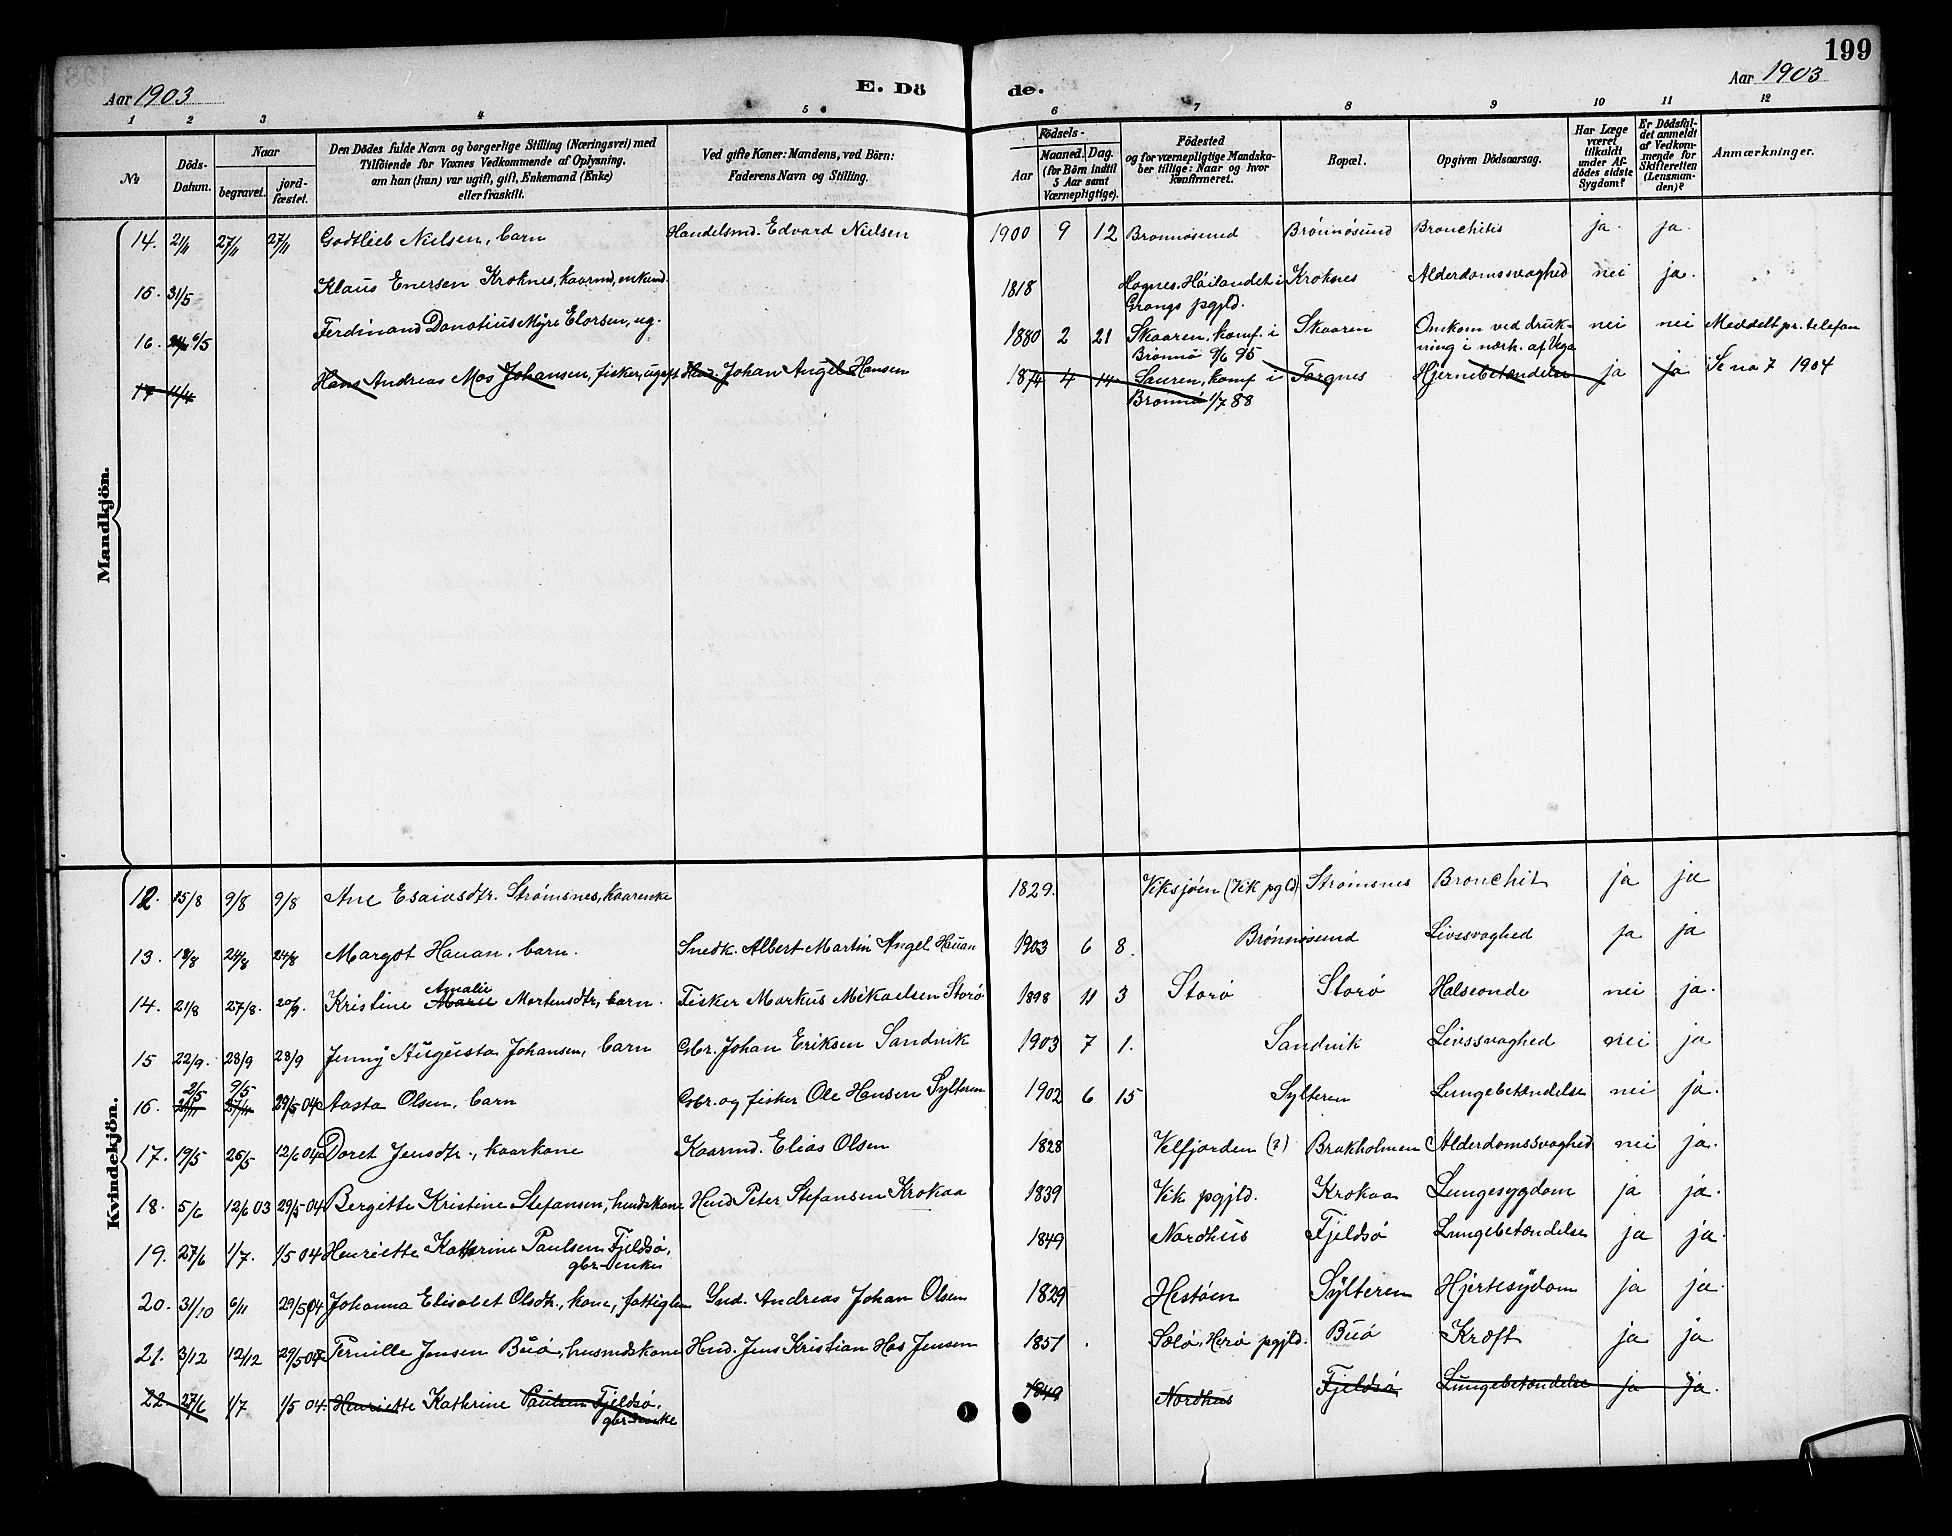 199
Aar 1903 E. Dö de. Aar 1903
1 2 3 4 5 6 7 8 9 10 11 12
№ Döds-Datum. Naar begravet. jord-fæstet. Den Dödes fulde Navn og borgerlige Stilling (Næringsvei) med Tilföiende for Voxnes Vedkommende af Oplysning, om han (hun) var ugift, gift, Enkemand (Enke) eller fraskilt. Ved gifte Koner: Mandens, ved Börn: Faderens Navn og Stilling. Födsels- Aar Maaned. Dag. (for Börn indtil 5 Aar samt Værnepligtige). Födested og for værnepligtige Mandskaber tillige: Naar og hvor konfirmeret. Bopæl. Opgiven Dödsaarsag. Har Læge været tilkaldt under Afdödes sidste Sygdom? Er Dödsfaldet anmeldt af Vedkommende for Skifteretten (Lensmanden)? Anmærkninger.
Mandkjön.
14. 21/11 27/11 27/11 Godtlieb Nielsen, barn Handelsmd. Edvard Nielsen 1900 9 12 Brønnøsund Brønnøsund Bronchitis ja. ja.
15. 31/5 Klaus Enersen Kroknes, kaarmd, enkemd. 1818 Hognes, Høilandet i Kroknes Alderdomssvaghed nei ja.
Grongs pgjld.
16. 9/5 Ferdinand Donatius Myre Elorsen, ug. 1880 2 21 Skaaren, konf. i Skaaren Omkom ved druk- nei nei Meddelt pr. telefon
Brønnø 9/6 95 ning i nærh. af Vega
17 11/4 Hans Andreas Mos Johansen, fisker, ugift Johan Angel Hansen 1874 4 14 Sauren, konf i Torgnes Hjernebetændelse ja ja Se no 7 1904
Brønnø 1/7 88
Kvindekjön.
12. 15/8 9/8 9/8 Ane Esaiasdtr. Strømsnes, kaarenke 1829. Viksjøen (Vik pgld) Strømsnes Bronchit ja ja
13. 18/8 24/8 24/8 Margot Hauan, barn. Snedk. Albert Martin Angel Hauan 1903 6 8. Brønnøsund Livssvaghed ja ja
Amalie
14. 21/8 27/8. 20/9. Kristine Marie Mortensdtr, barn. Fisker Markus Mikaelsen Storø 1898 11 3 Storø Storø Halseonde nei ja.
15 22/9. 28/9 28/9 Jenny Augusta Johansen, barn Gbr. Johan Eriksen Sandvik 1903 7 1. Sandvik Livssvaghed nei ja
2/5 9/5
16. 21/11 27/11 29/5 04 Aasta Olsen, barn Gbr. og fisker Ole Hansen Sylteren 1902 6 15 Sylteren Lungebetændelse nei ja.
17. 19/5 26/5 12/6 04 Doret Jensdtr., kaarkone Kaarmd. Elias Olsen 1828 Velfjorden (?) Brakholmen Alderdomssvaghed nei ja.
18. 5/6 12/6 03 29/5 04 Bergitte Kristine Stefansen, husmdskone Husmd Peter Stefansen Krokaa 1839 Vik pgjld. Krokaa Lungesygdom ja ja.
19. 27/6 1/7. 1/5 04 Henriette Kathrine Paulsen Fjeldsø, 1849 Nordhus Fjeldsø Lungebetændelse ja ja.
gbr-enke
20. 31/10 6/11 29/5 04 Johanna Elisabet Olsdtr., kone, fattiglem Inds. Andreas Johan Olsen 1829 Hestøen Sylteren Hjertesydom ja ja.
21. 3/12 12/12 29/5 04 Pernille Jensen Buø, husmdskone Husmd. Jens Kristian Hos Jensen 1851 Solø, Herø pgjld. Buø Kræft ja ja
22 27/6 1/7 1/5 04. Henriette Kathrine Paulsen Fjeldsø, 1849 Nordhus Fjeldsø Lungebetændelse ja ja.
gbr-enke